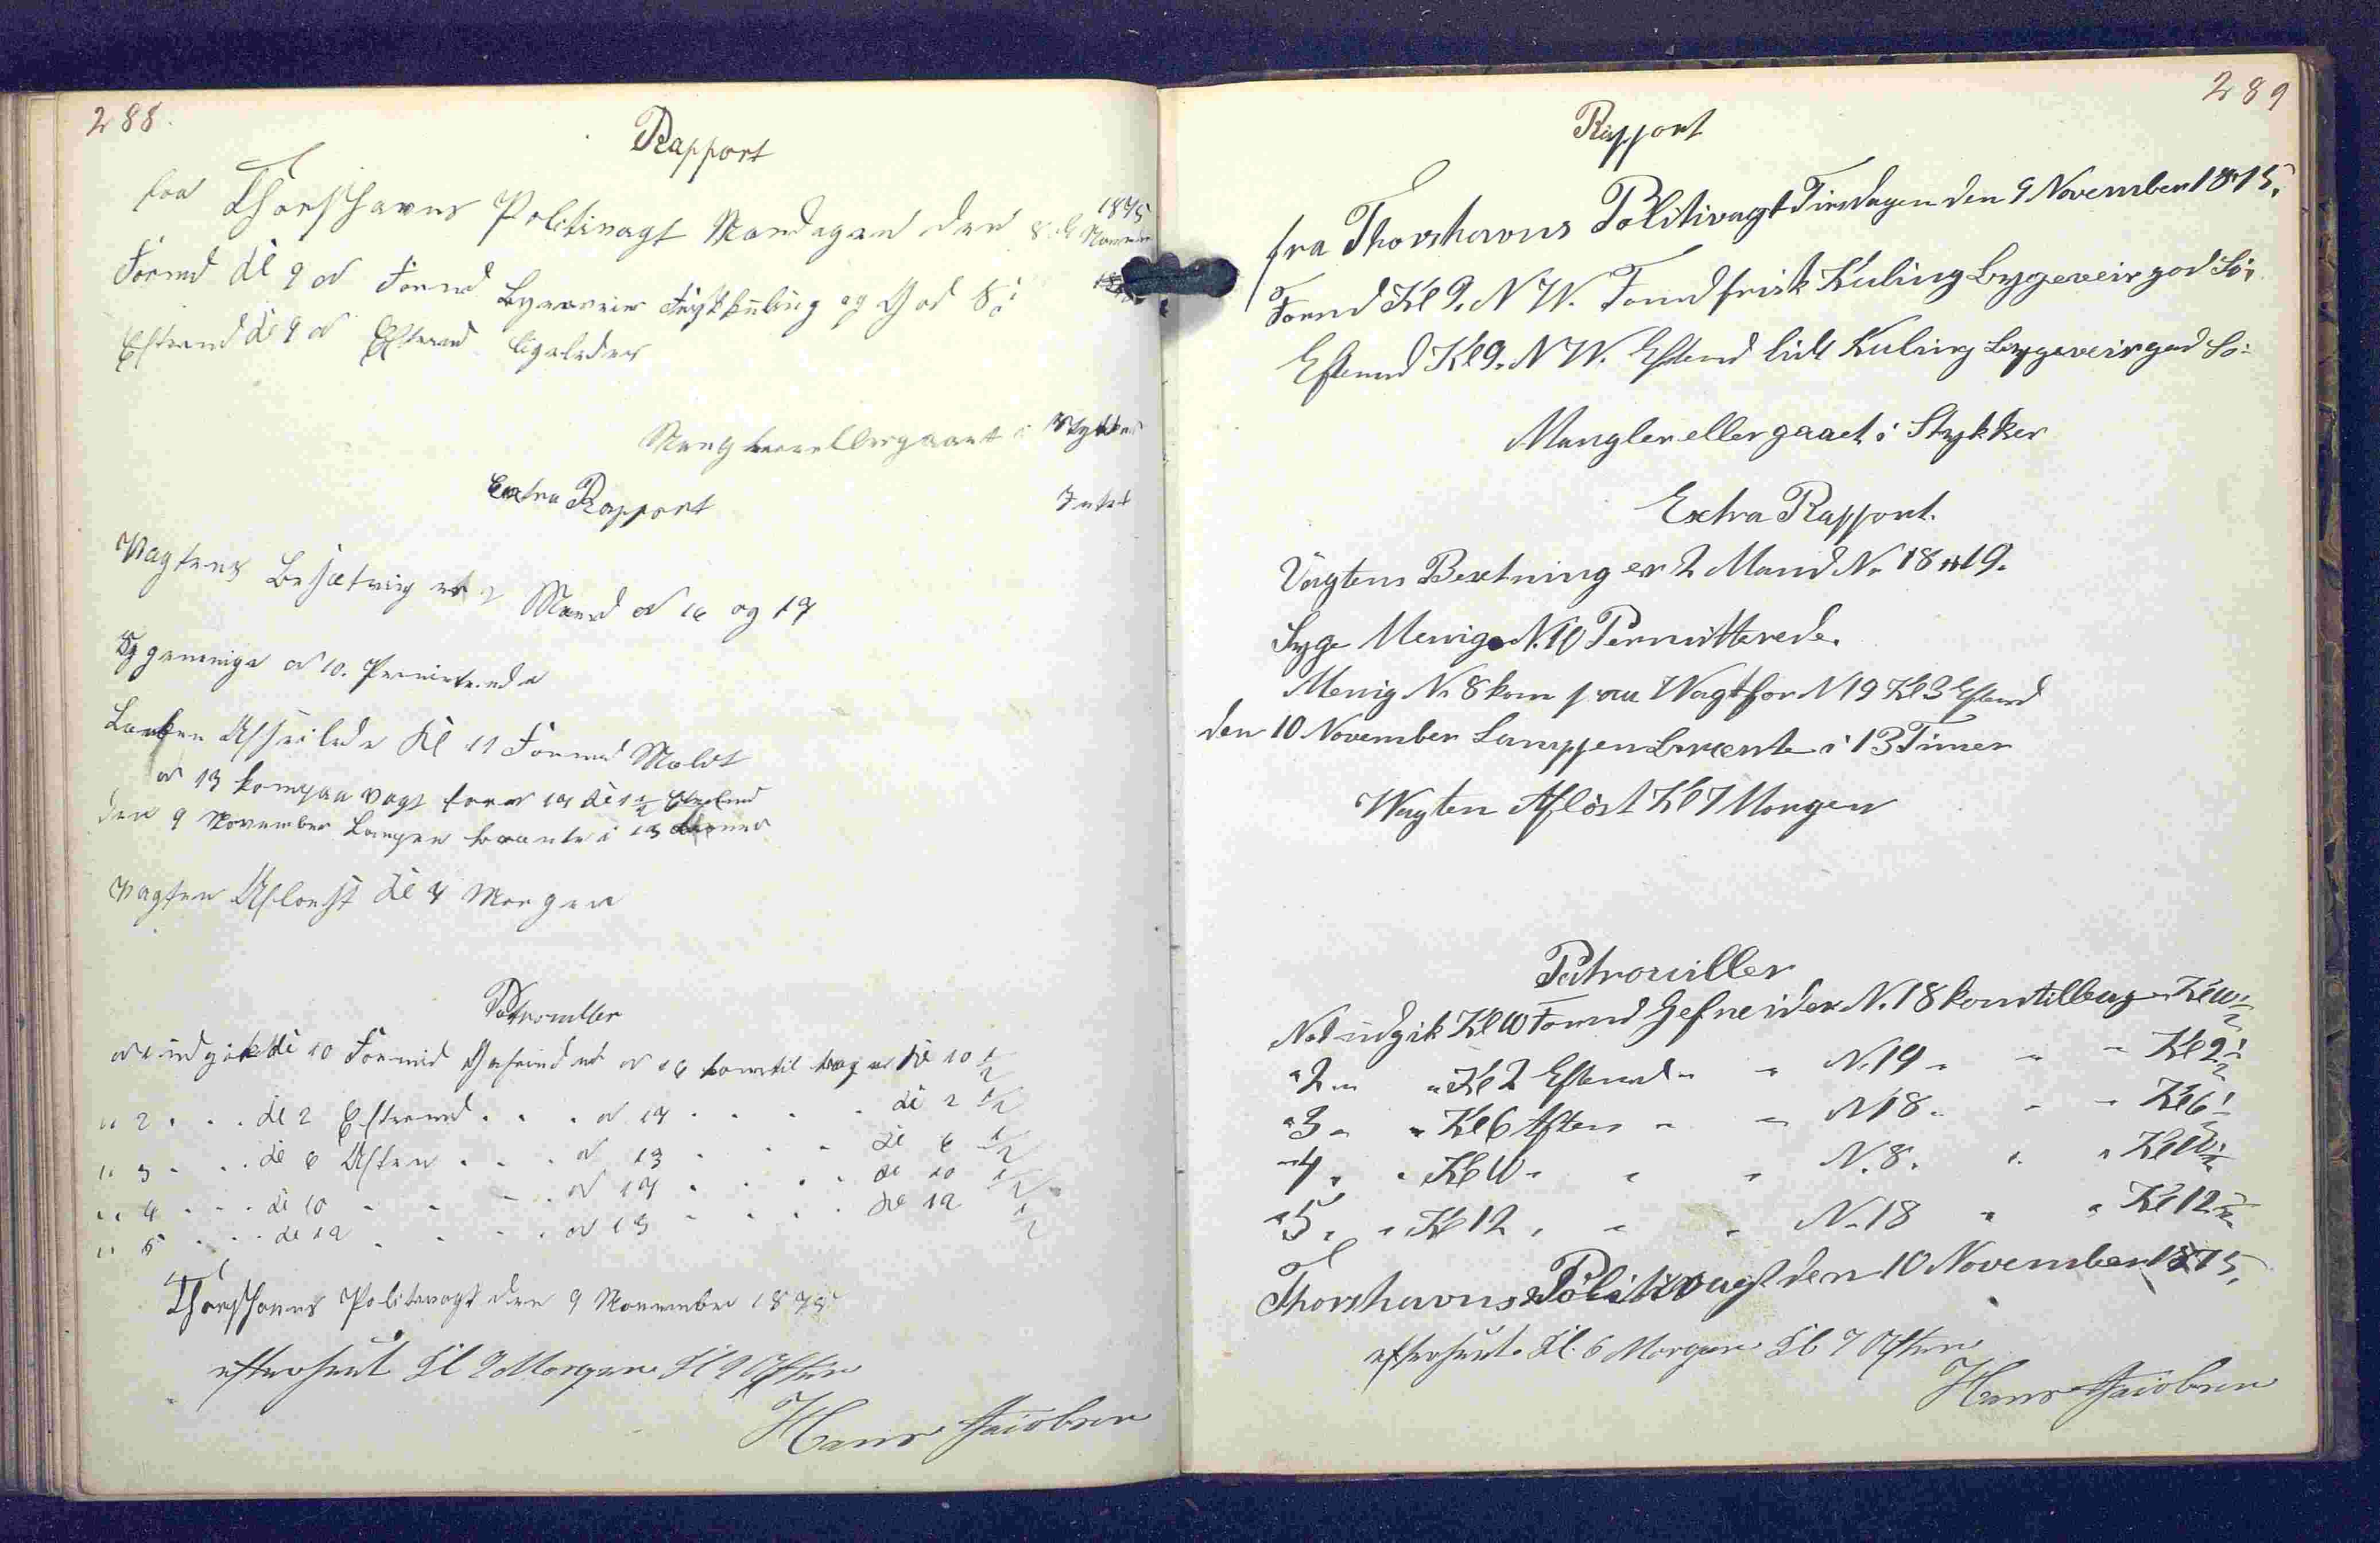 288.
Rapport
fra Thorshavns Politivagt Mandagen den 8 November 1875
Formd Kl 9 N Formd Bygeveir friskkuling og God Sö
Eftermd Kl 9 N Eftermd ligeledes
Manglereellergaaet i Stykker
Extra Rapport Intet
Vagtens Besætning er 2 Mand N 16 og 19
Sygemenige N 10. Permiterede
Kl 11 Formd
N 13 kom paa Vagt for N 19
den 9 November Lampen brænte i 13 Timer
Vagten Afloest Kl 7 Morgen
Patrouller
N 1 udgik Kl 10 Formid Gefreider N 16 kom tilbage Kl 10 1/2
" 2 . . . Kl 2 Eftermd . . . N 19 . . . . Kl 2 1/2
" 3 . . . Kl 6 Aften . . . N 13 . . . Kl 6 1/2
" 4 . . . Kl 10 . . . N 19 . . . . Kl 10 1/2
" 5 . . . Kl 12 . . . . N 13 . . . . Kl 12 1/2
Thorshavns Politivagt den 9 November 1875
efterseet Kl 9 Morgen Kl 9 Aften
Hans Jacobsen
289
Rapport
fra Thorshavns Politivagt Tirsdagen den 9 November 1875.
Formd Kl 9. N W. Formd frisk Kuling Bygeveir god Sö.
Eftermd Kl 9. N W. Eftmd lidt Kuling Bygeveir god Sö.
Mangler eller gaaet i Stykker
Extra Rapport.
Vagtens Besetning er 2 Mand N. 18 19.
Syge Menige N. 10 Permitterede.
Menig N. 8 kom paa Wagt for N 19 Kl 3 Eftmd
den 10 November Lamppen Brænte i 13 Timer
Wagten Aflöst Kl 7 Morgen
Patrouiller
No 1 udgik Kl 10 Formd Gefreider N. 18 kom tilbage Kl 10 1/2
" 2 " " Kl 2 Eftermd " " N. 19 " " " Kl 2 1/2
" 3 " " Kl 6 Aften " " N 18 " " " Kl 6 1/2
" 4 " " Kl 10 " " " N. 8. " " Kl 10 1/2
" 5 " " Kl 12 " " " N. 18 " " Kl 12 1/2
Thorshavns Politivagt den 10 November 1875.
efterseet Kl. 6 Morgen Kl 7 Aften
Hans Jacobsen